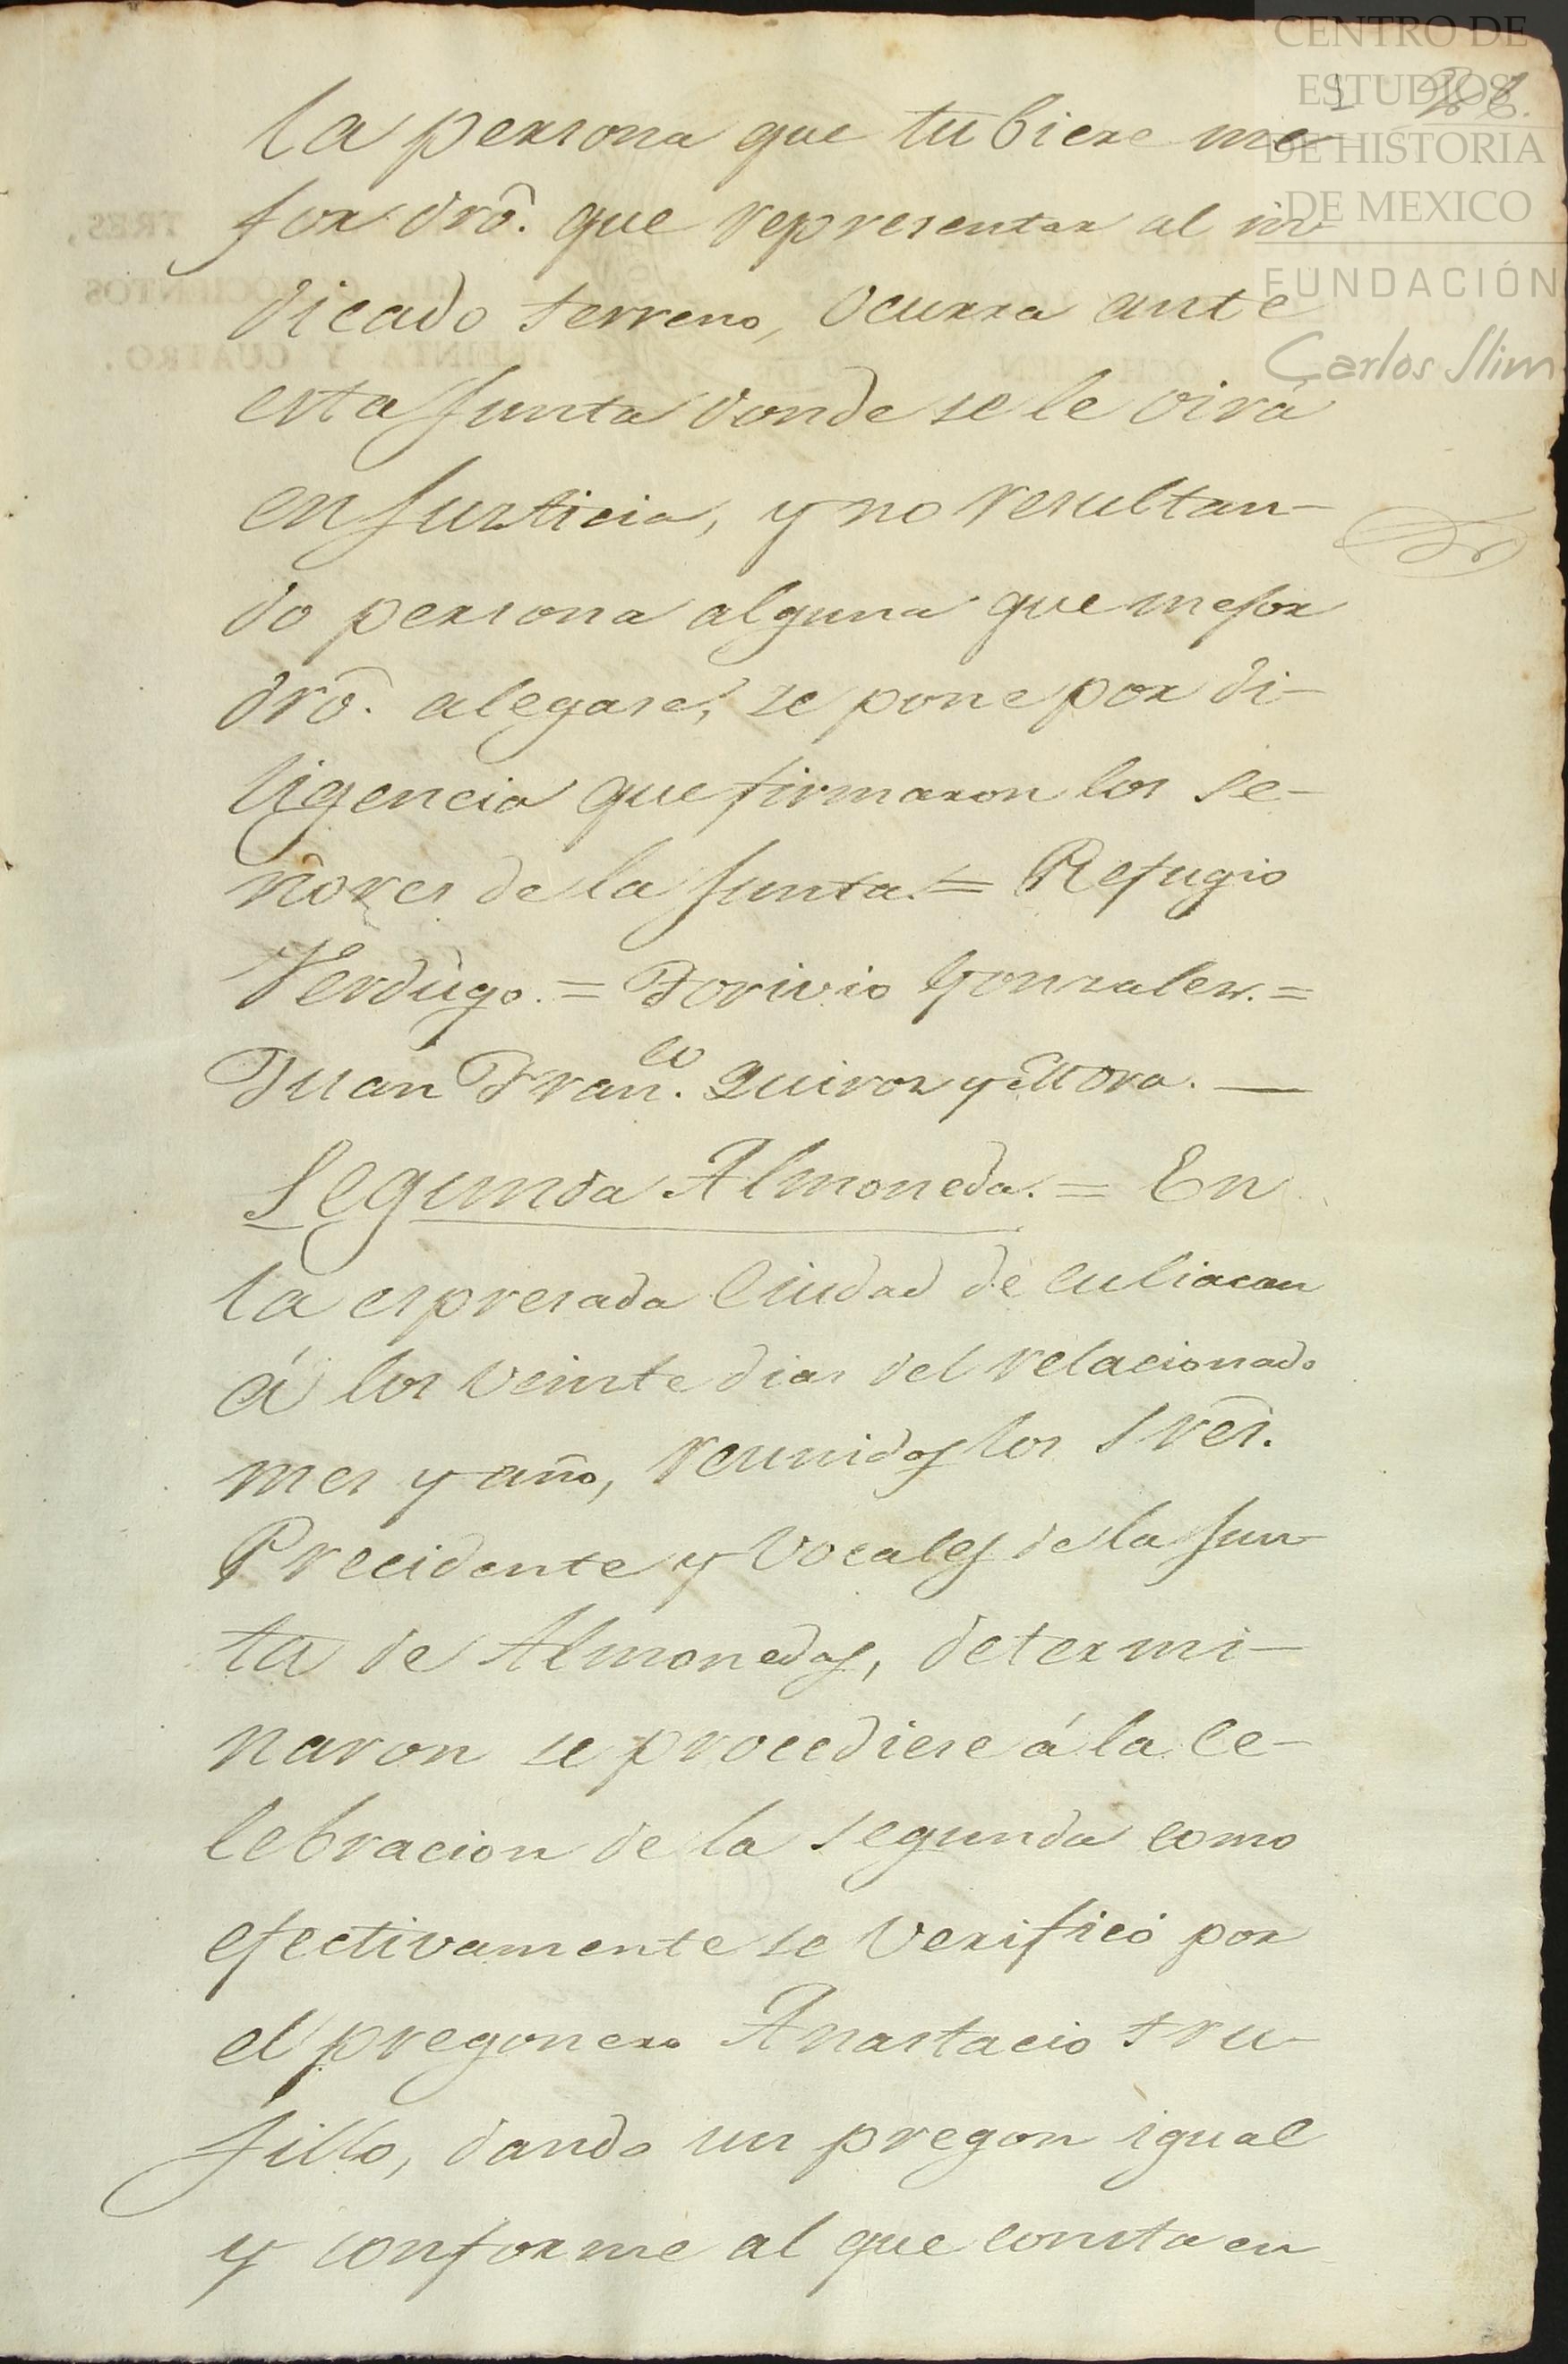 CENTRO DE
ESTUDIOS
DE HISTORIA
DE MEXICO
FUNDACIÓN
Carlos Slim
la persona que tubiere me-
jor dro͂. que representar al in-
dicado terreno, ocurra ante
esta Junta donde se le oirá
en Justicia, y no resultan-
do persona alguna que mejor
dro͂. alegase, se pone por di-
ligencia que firmaron los se-
ñores de la Junta. = Refugio
Verdugo. = Torivio Gonzalez. =
Juan Fran.co Quiroz y Mora. —
Segunda Almoneda. = En
la espresada Ciudad de Culiacan
á los veinte dias del relacionado
mes y año, reunidos los Sres.
Precidente y Vocales de la Jun-
ta de Almonedas, determi-
naron se procediese á la ce-
lebracion de la segunda como
efectivamente se verificó por
el pregonero Anastacio Tru-
jillo, dando un pregon igual
y conforme al que consta en
TRES,
OCHOCIENTOS
TREINTA Y CUATRO.